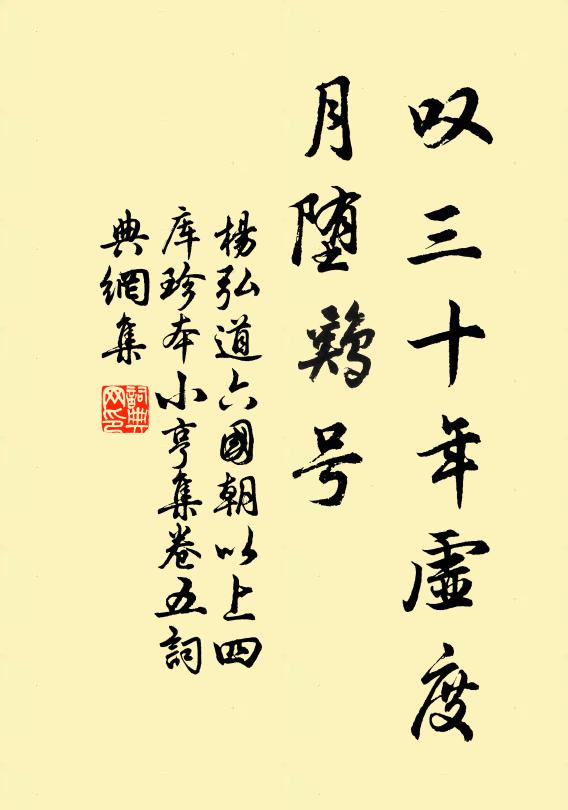 叹三十年虚度
月堕鷄号
楊弘道六國朝以上四
库珍本小亨集卷五詞
典網集
詞典
网印